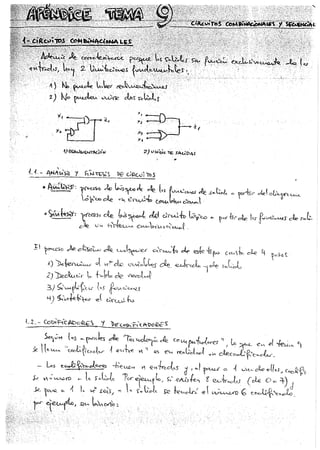 APÉNDICE TEMA 9
CIRCUITOS COMBINACIONALES Y SECUENCIAL
1- CIRCUITOS COMBINACIONALES
Además de caracterizarse porque las salidas son función exclusivamente de las
entradas, hay 2 limitaciones fundamentales:
1) No puede haber realimentaciones
2) No pueden unirse dos salidas
1) REALIMENTACIÓN
2) UNIÓN DE SALIDAS
1.1.- ANÁLISIS Y SÍNTESIS DE CIRCUITOS
• Análisis: proceso de búsqueda de las funciones de salida a partir del diagrama
lógico de un circuito combinacional
• Síntesis: proceso de búsqueda del circuito lógico a partir de las funciones de sali-
da de un sistema combinacional.
El proceso de diseño de cualquier circuito de este tipo consta de 4 pasos
1) Determinar el nº de variables de entrada y de salida
2) Deducir la tabla de verdad
3) Simplificar las funciones
4) Sintetizar el circuito
1.2.- CODIFICADORES Y DECODIFICADORES
Según los apuntes de "Tecnología de computadores", lo que en el tema 9
se llama "codificador 1 entre n" es en realidad un decodificador.
- Los codificadores tienen n entradas y, al poner a 1 una de ellas, codifi
su número a la salida. Por ejemplo, si existen 8 entradas (de 0 a 7) y
se pone a 1 la nº seis, a la salida se tendrá el número 6 codificado,
por ejemplo, en binario: